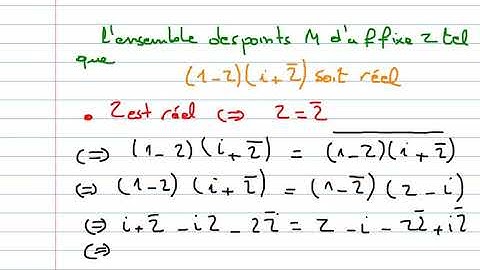 L'ensemble des points M d'affixe z tel
que
(1-z)(i+z̅) soit réel
• Z est réel (=) Z = Z̅
(=) (1-z)(i+z̅) = \overline{(1-z)(i+z̅)}
(=) (1-z)(i+z̅) = (1-z̅)(z-i)
(=) i+z̅-iz-zz̅ = z-i-zz̅+iz̅
(=)